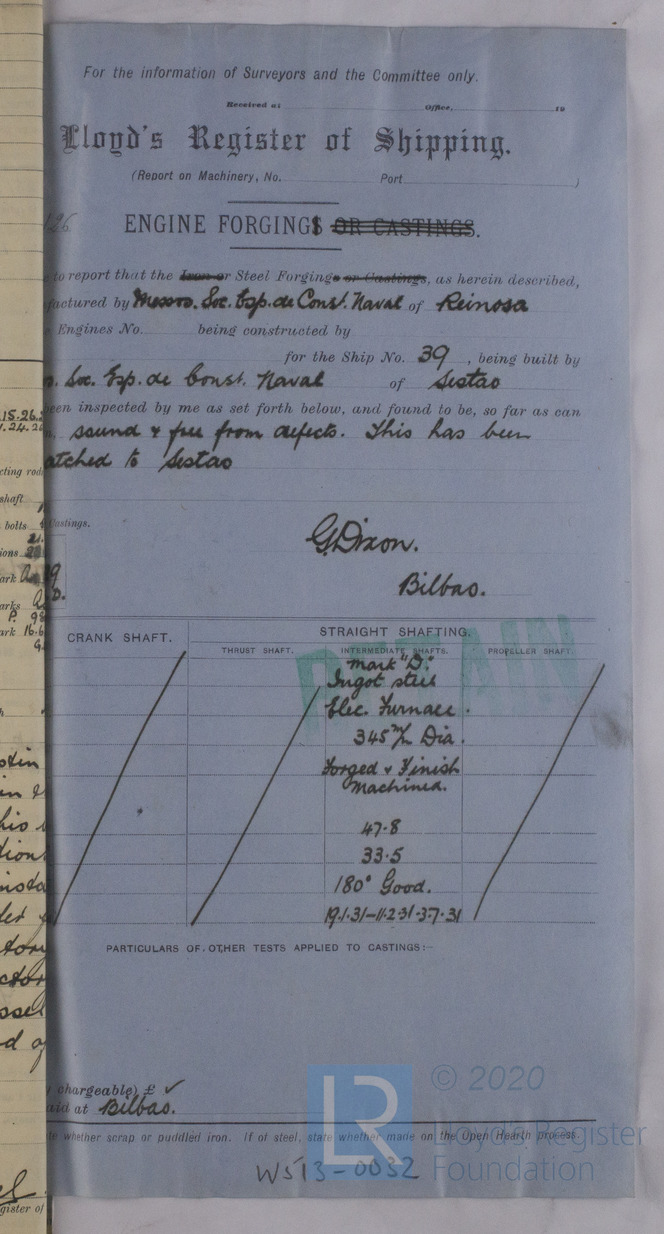 For the information of Surveyors and the Committee only.
Received at Office, 19
Lloyd's Register of Shipping.
(Report on Machinery, No. Port )
126
ENGINE FORGINGS OR CASTINGS.
to report that the Iron or Steel Forgings or Castings, as herein described,
factured by Messrs. Soc. Esp. de Const. Naval of Reinosa
Engines No. being constructed by
for the Ship No. 39, being built by
Soc. Esp. de Const. Naval of Sestao
een inspected by me as set forth below, and found to be, so far as can
sound & free from defects. This has been
atched to Sestao
Castings.
G. Dixon.
Bilbao.
CRANK SHAFT.
STRAIGHT SHAFTING.
THRUST SHAFT. INTERMEDIATE SHAFTS. PROPELLER SHAFT.
RETAIN
Mark "D."
Ingot steel
Elec. Furnace.
345 m/m Dia.
Forged & Finish
Machined.
47.8
33.5
180° Good.
19.1.31-11.2.31-3.7.31
PARTICULARS OF OTHER TESTS APPLIED TO CASTINGS:-
chargeable) £ ✓
aid at Bilbao.
te whether scrap or puddled iron. If of steel, state whether made on the Open Hearth process.
W513-0032
© 2020
Lloyd's Register
Foundation
LR
15.26.
1.24.26
cting rod
shaft
bolts
ions
ark
arks
P. 98
ark 16.6
gister of